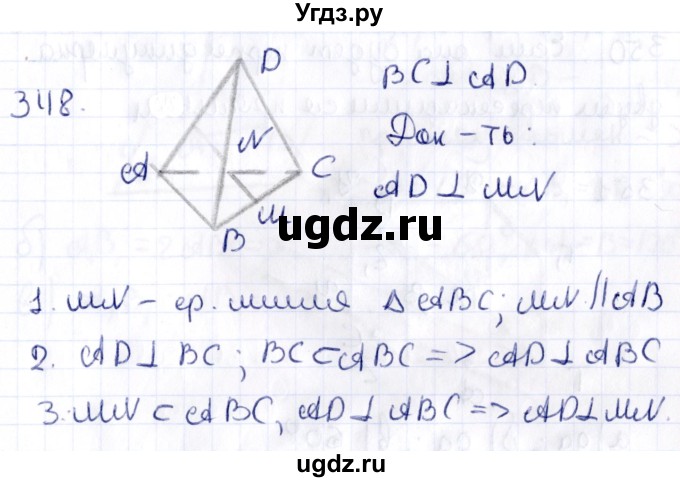 Угдз.ру
348.
D
A
N
C
M
B
BC⊥AD.
Док-ть:
AD⊥MN
ugdz.ru
1. MN – ср. линия ΔABC; MN ∥ AB
2. AD⊥BC; BC⊂ABC => AD⊥ABC
3. MN⊂ABC, AD⊥ABC => AD⊥MN.
ugdz.ru